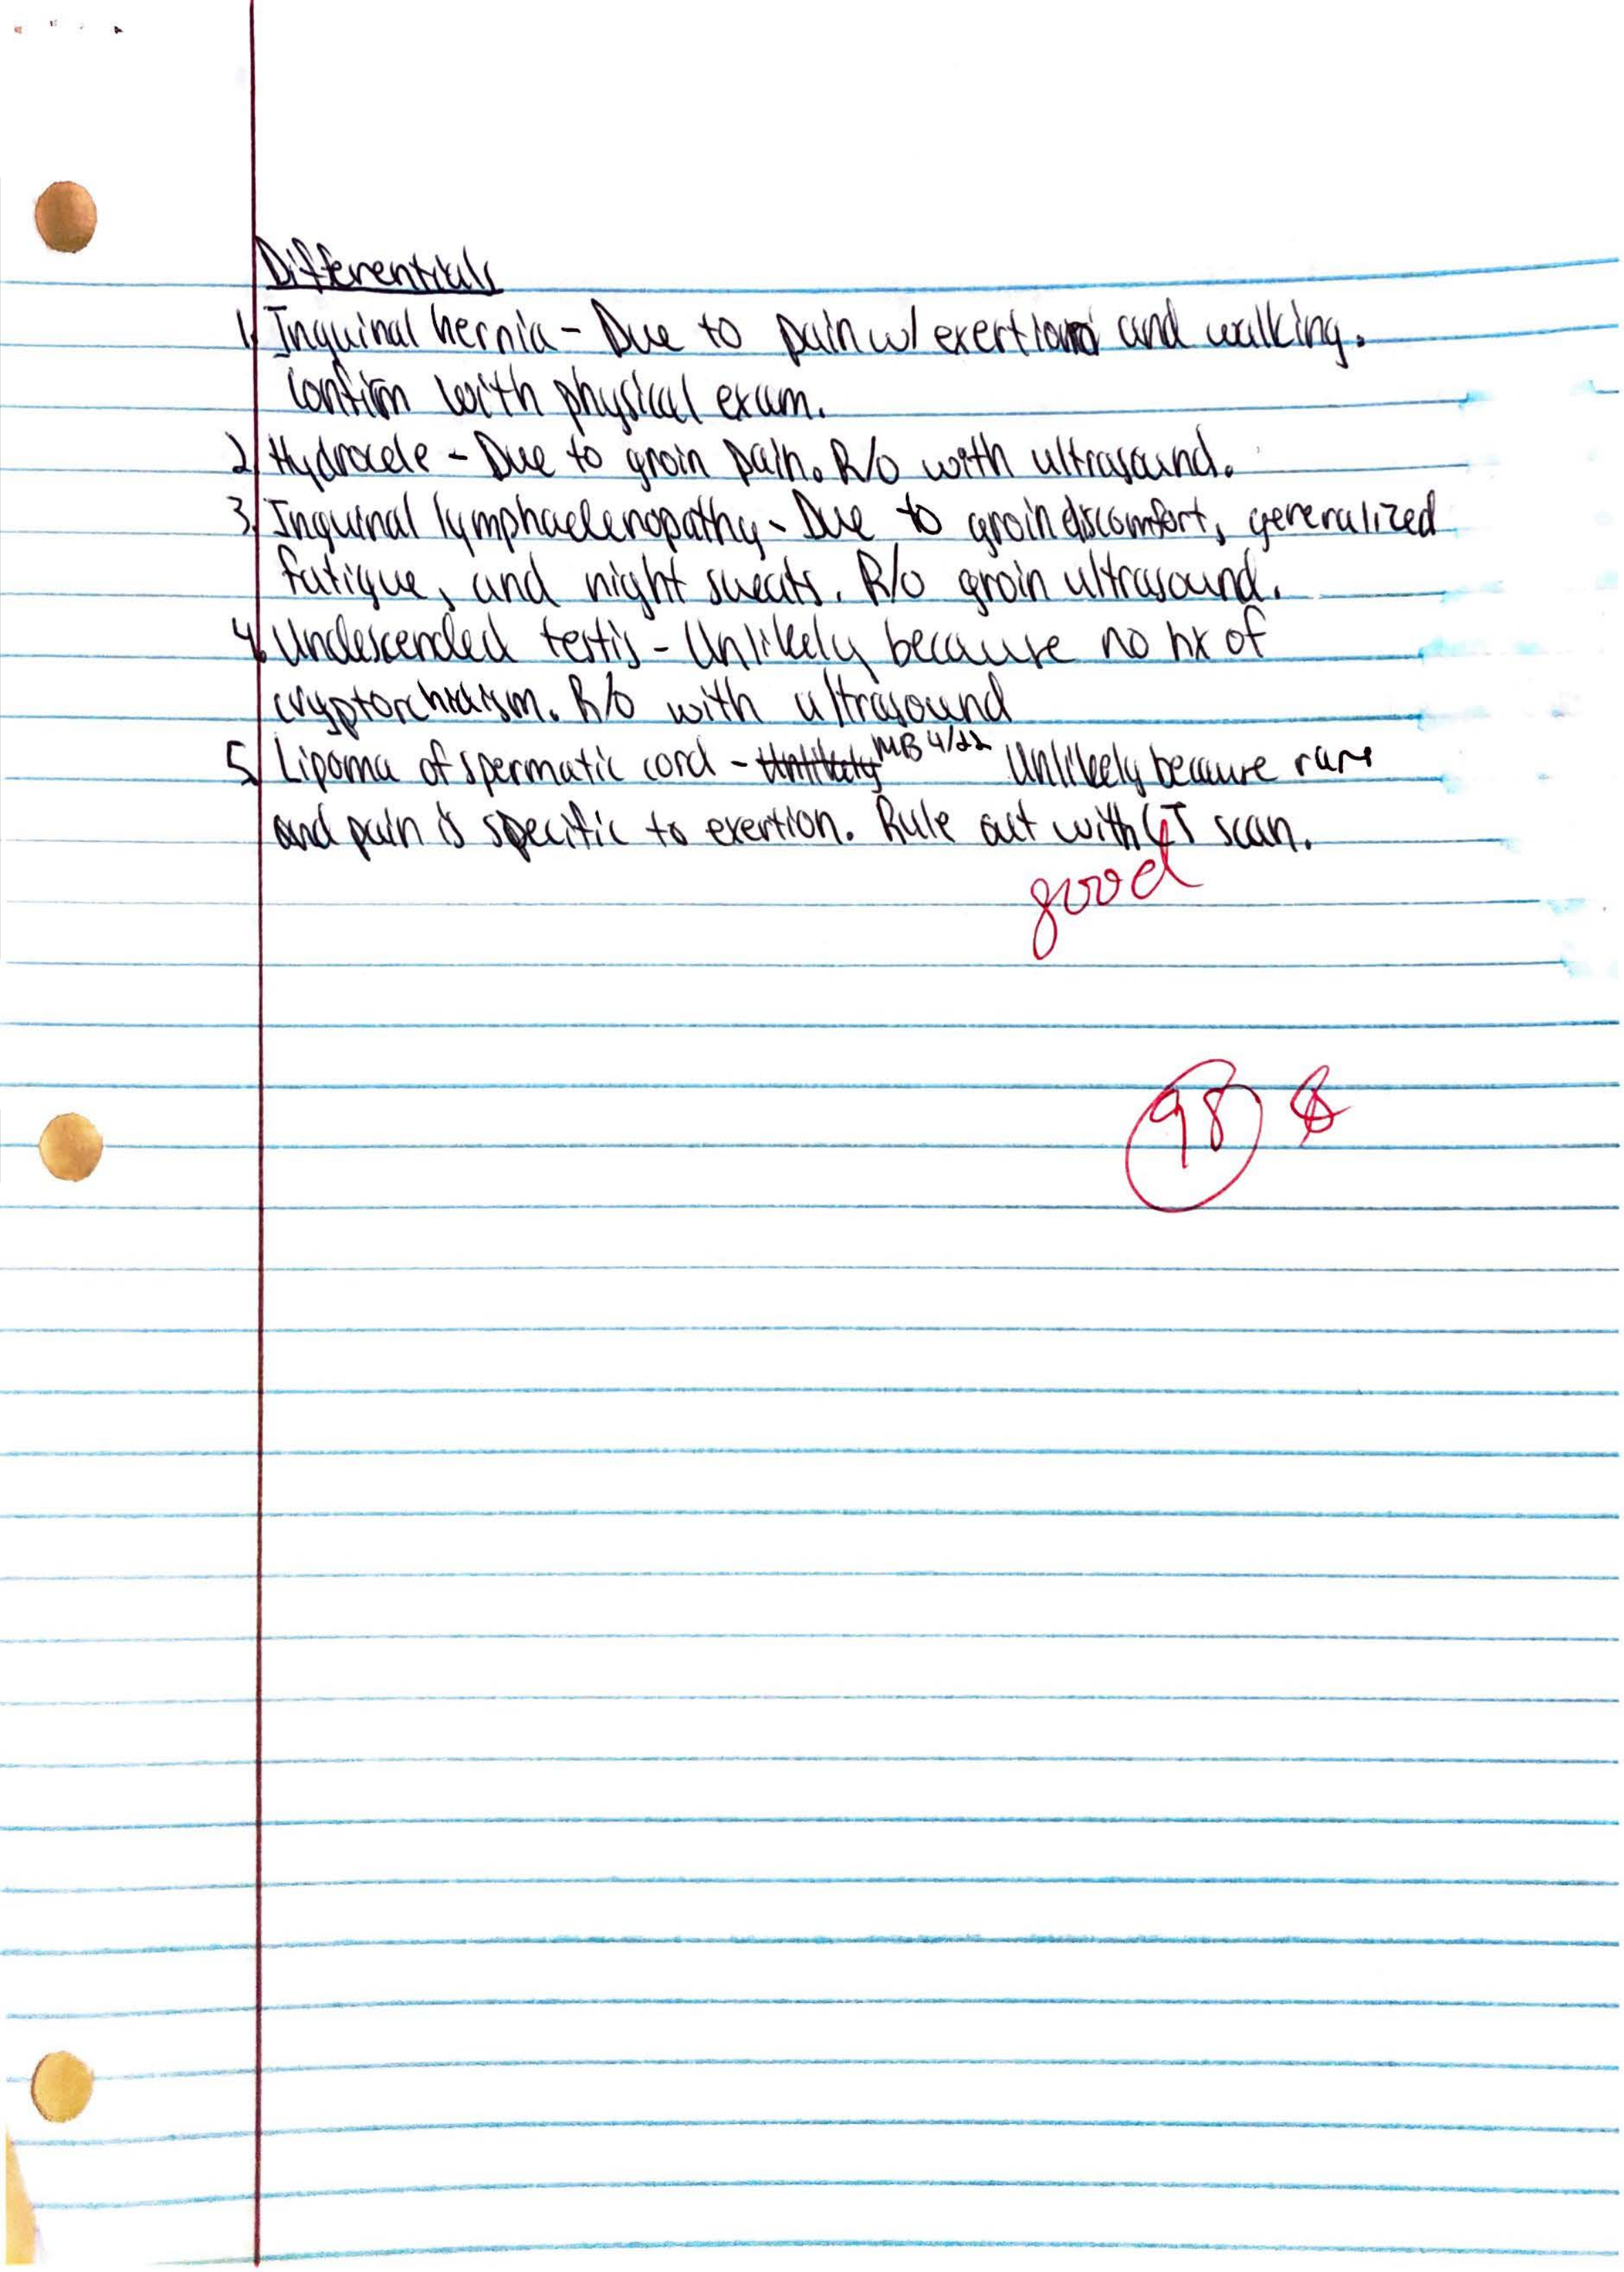 Differentials
1. Inguinal hernia - Due to pain w/ exertion and walking.
Confirm with physical exam.
2. Hydrocele - Due to groin pain. R/o with ultrasound.
3. Inguinal lymphadenopathy - Due to groin discomfort, generalized
fatigue, and night sweats. R/o groin ultrasound.
4. Undescended testis - Unlikely because no hx of
cryptorchidism. R/o with ultrasound
5. Lipoma of spermatic cord - Unlikely MB 4/22 Unlikely because rare
and pain is specific to exertion. Rule out with CT scan.
good
98